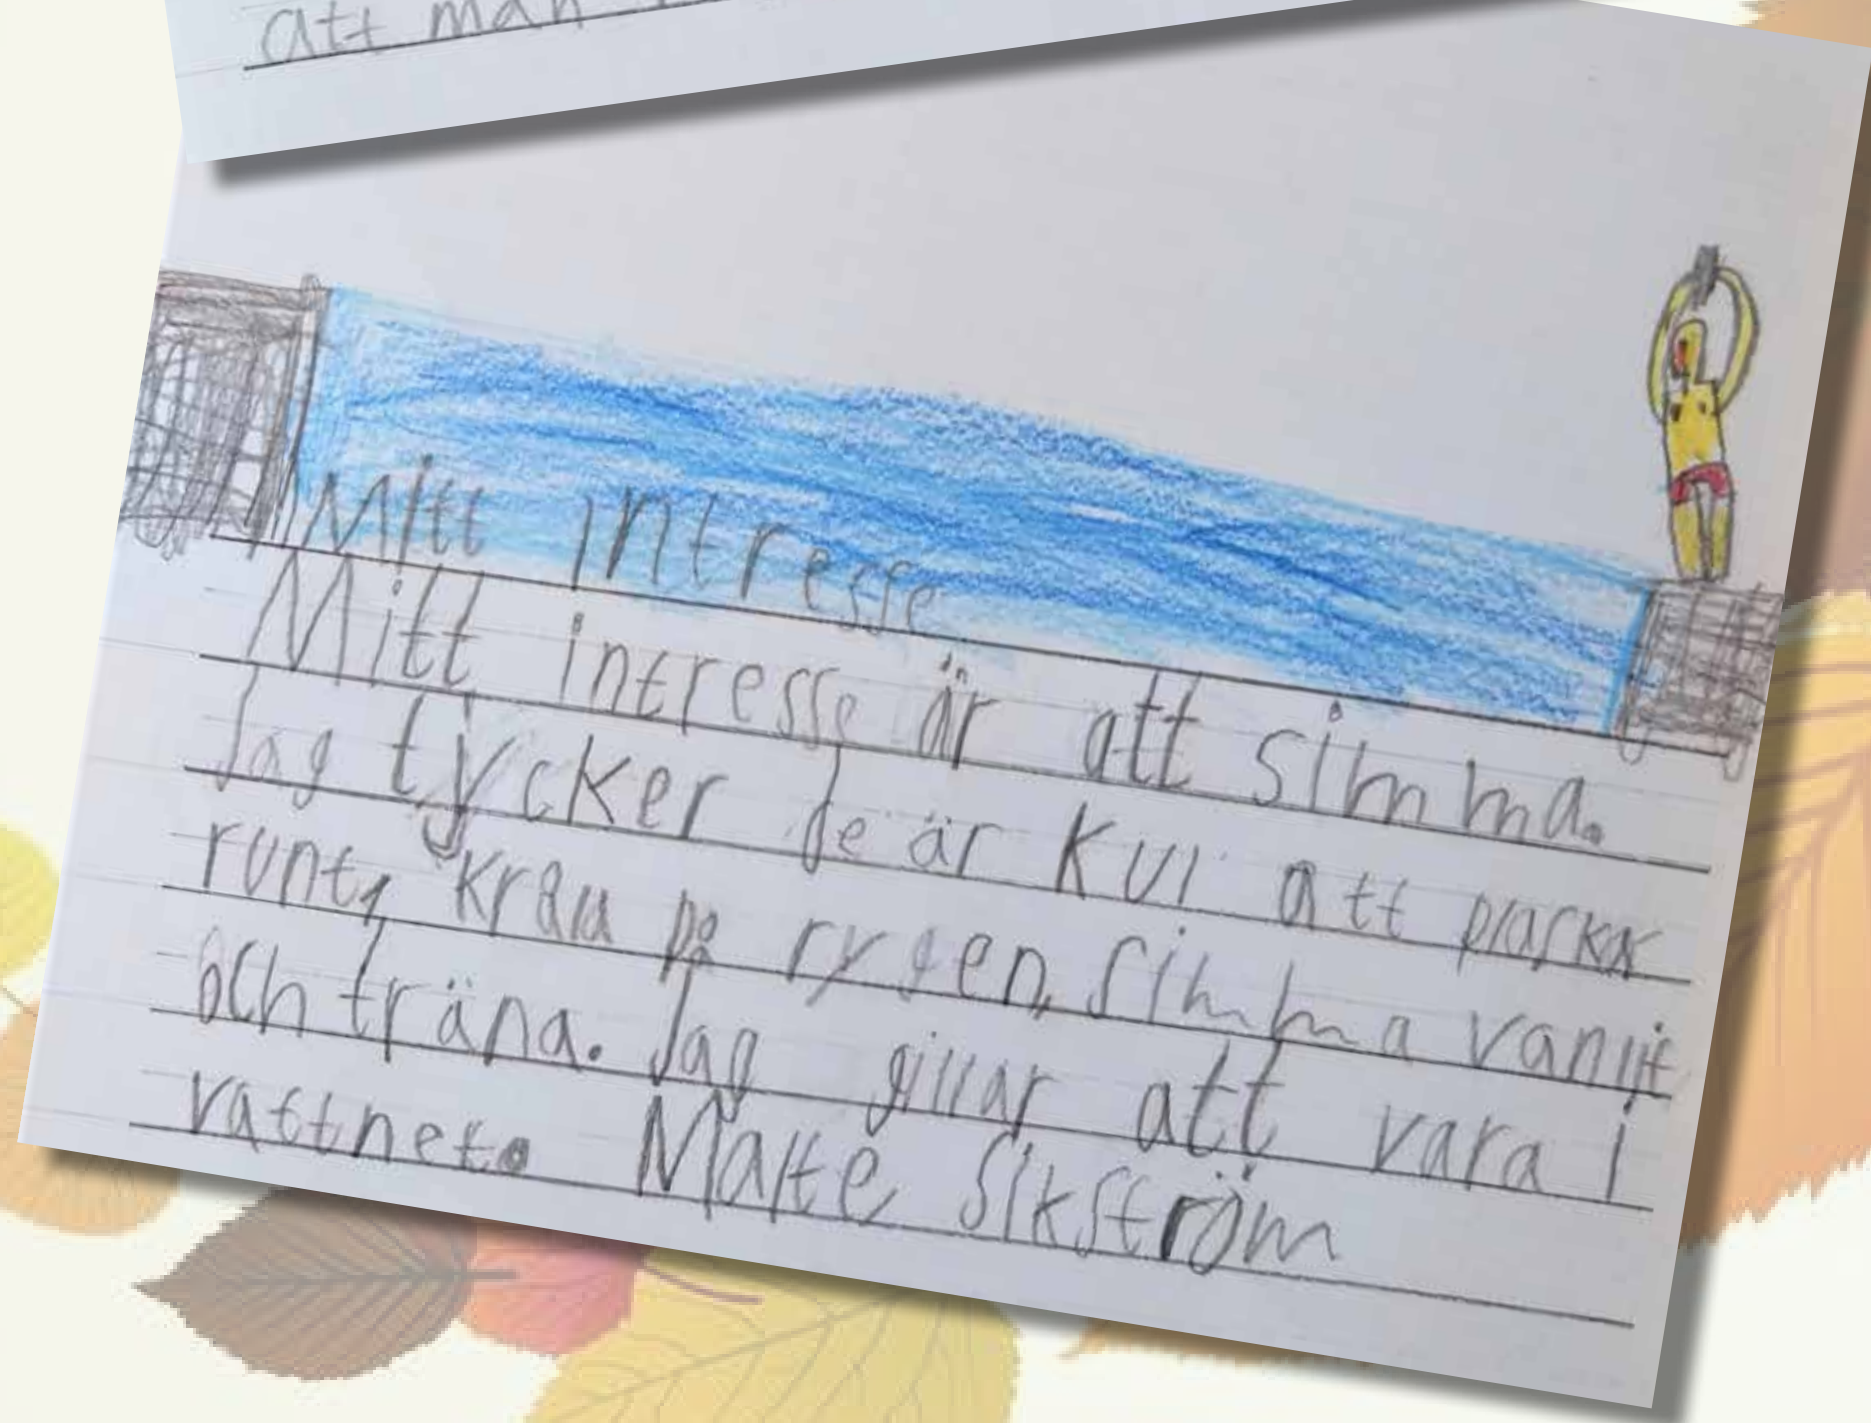 att man
Mitt intresse
Mitt intresse är att simma.
Jag tycker de är kul att plaska
runt, kråla på rygen, simma vanlit
och träna. Jag gillar att vara i
vattnet. Malte Sikström